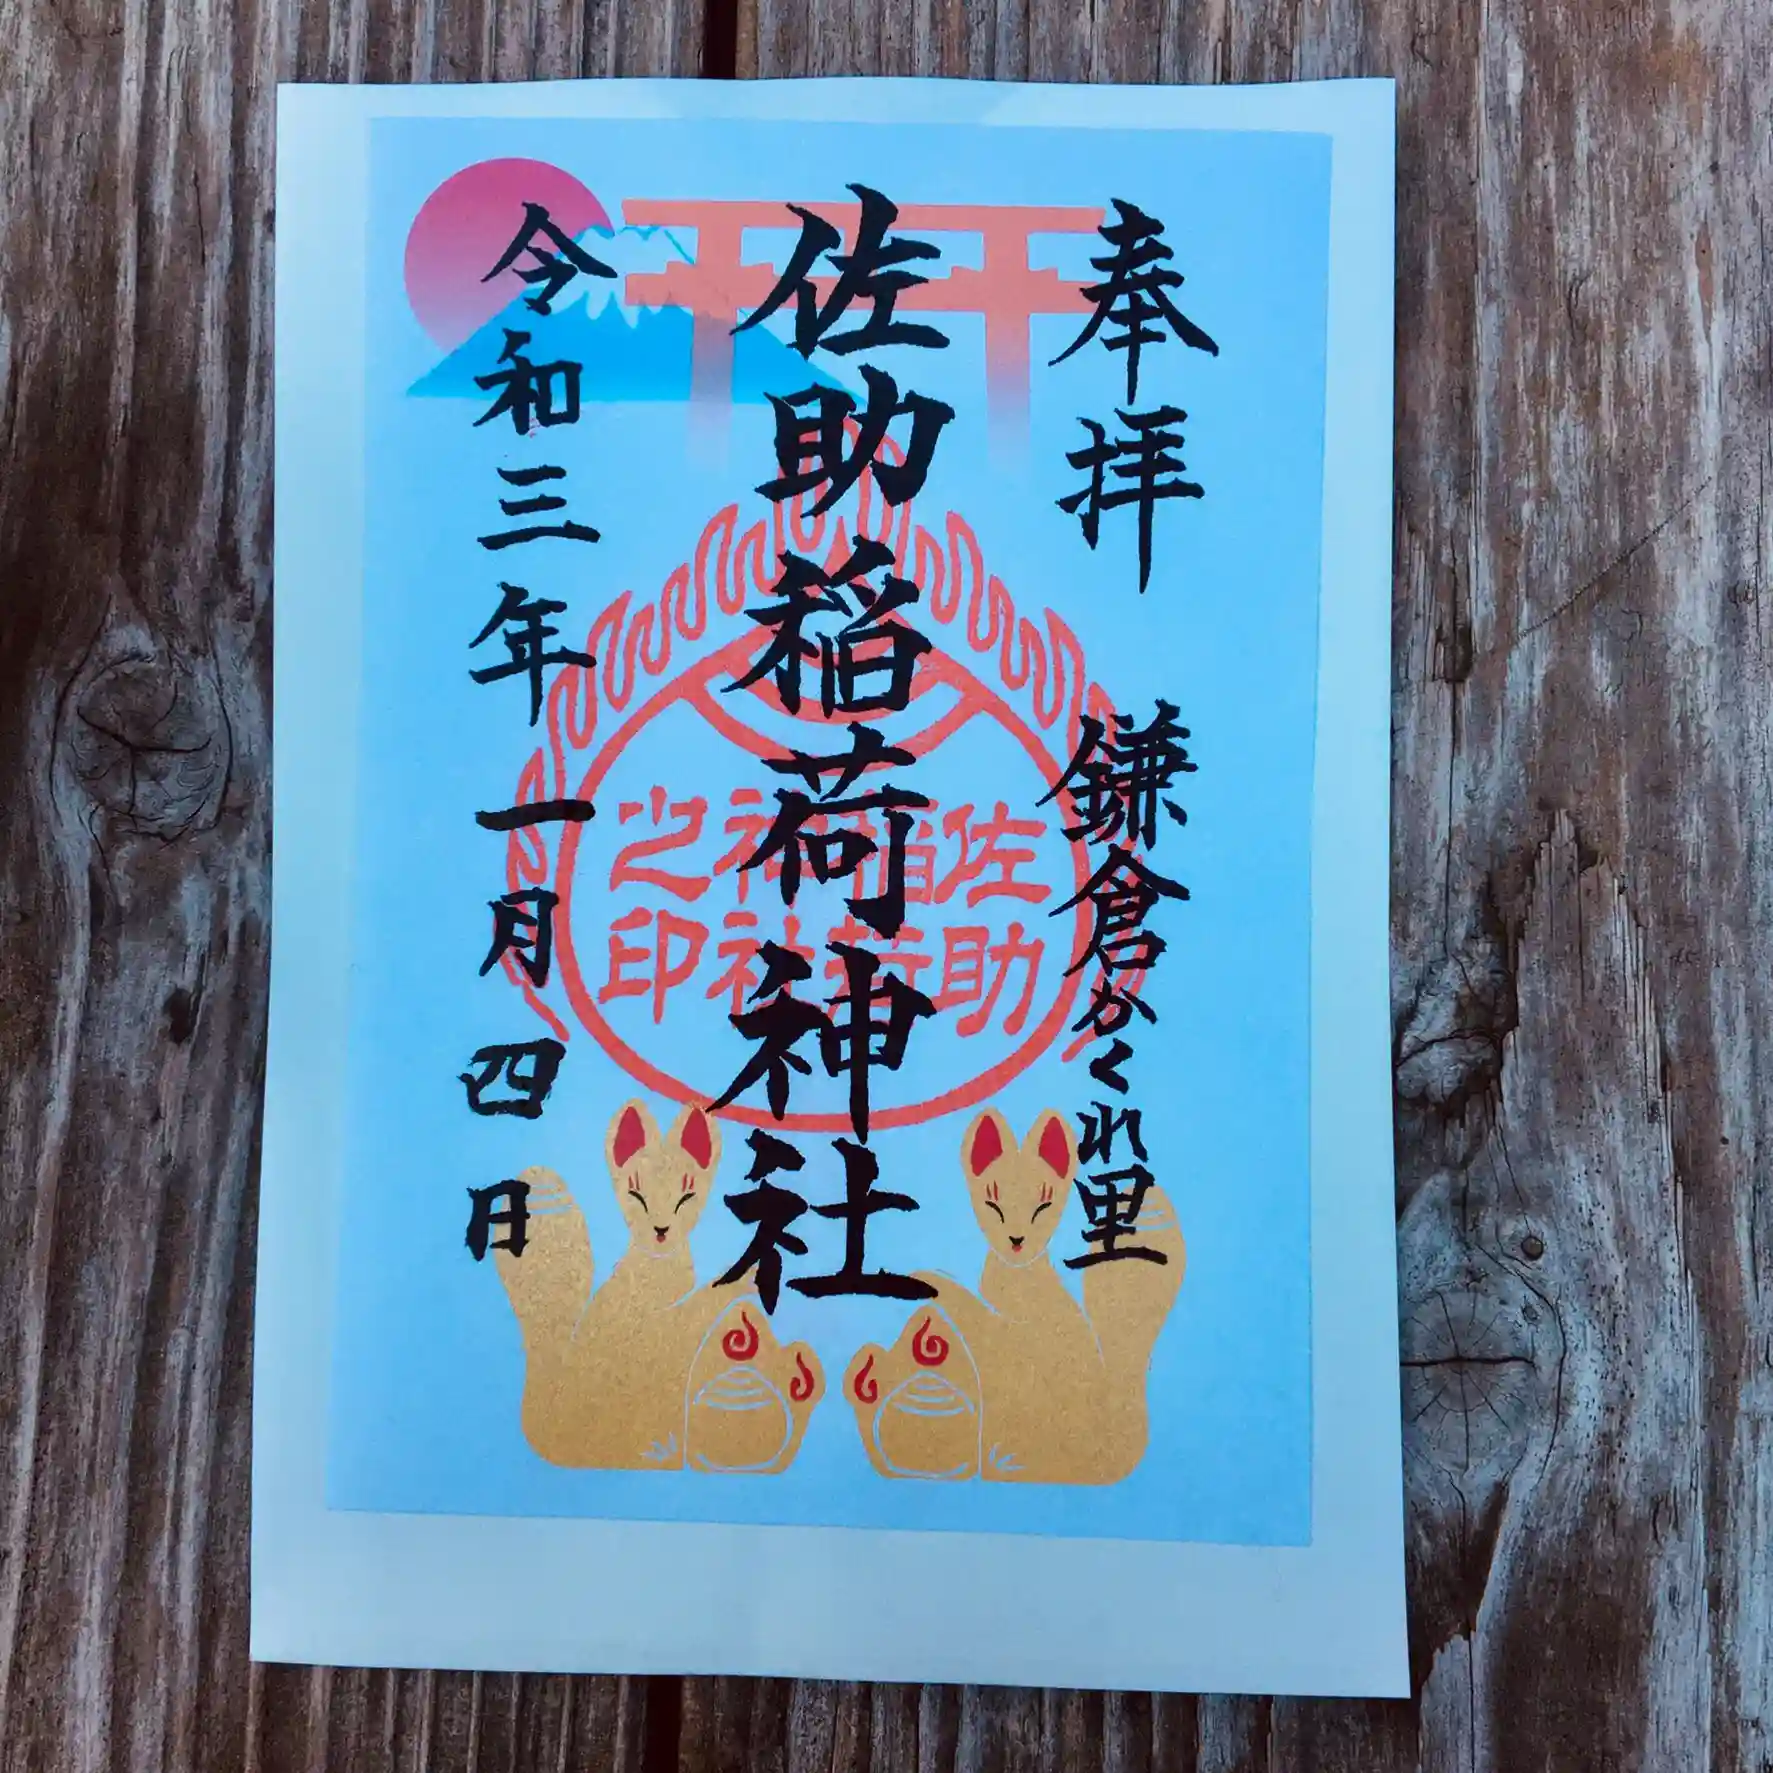 奉拝 鎌倉かくれ里
佐助稲荷神社
令和三年一月四日
佐助
稲荷
神社
之印